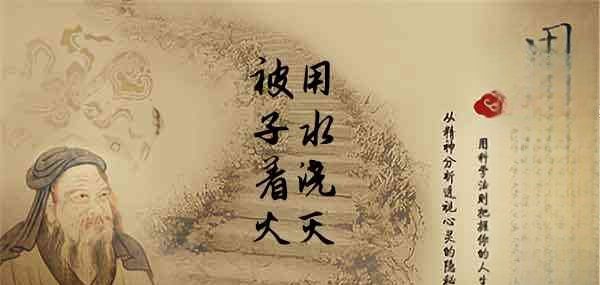 被子着火
用水浇灭
从精神分析透视心灵的隐秘
用科学法则把握你的人生